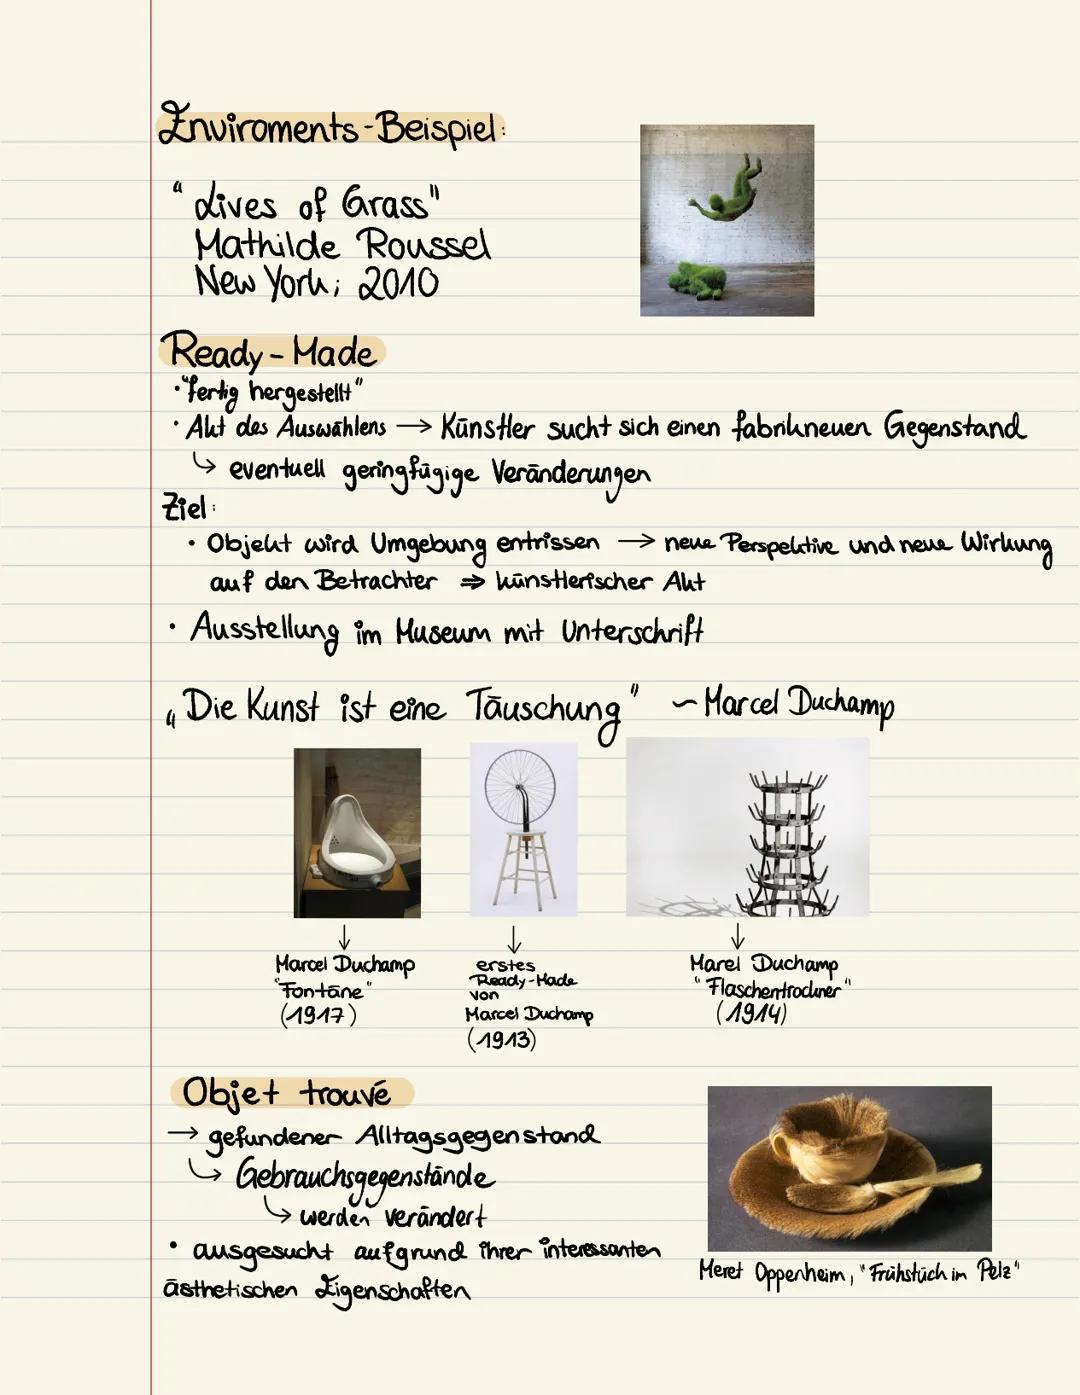 Enviroments-Beispiel:
"Lives of Grass"
Mathilde Roussel
New York; 2010
Ready-Made
• "fertig hergestellt"
• Akt des Auswählens → Künstler sucht sich einen fabrikneuen Gegenstand
↳ eventuell geringfügige Veränderungen
Ziel:
• Objekt wird Umgebung entrissen → neue Perspektive und neue Wirkung
auf den Betrachter ⇒ künstlerischer Akt
• Ausstellung im Museum mit Unterschrift
„Die Kunst ist eine Täuschung" ~ Marcel Duchamp
↓ Marcel Duchamp
"Fontäne"
(1917)
↓ erstes
Ready-Made
von
Marcel Duchamp
(1913)
↓ Marel Duchamp
"Flaschentrockner"
(1914)
Objet trouvé
→ gefundener Alltagsgegenstand
↳ Gebrauchsgegenstände
↳ werden verändert
• ausgesucht aufgrund ihrer interessanten
ästhetischen Eigenschaften
Meret Oppenheim, "Frühstück im Pelz"